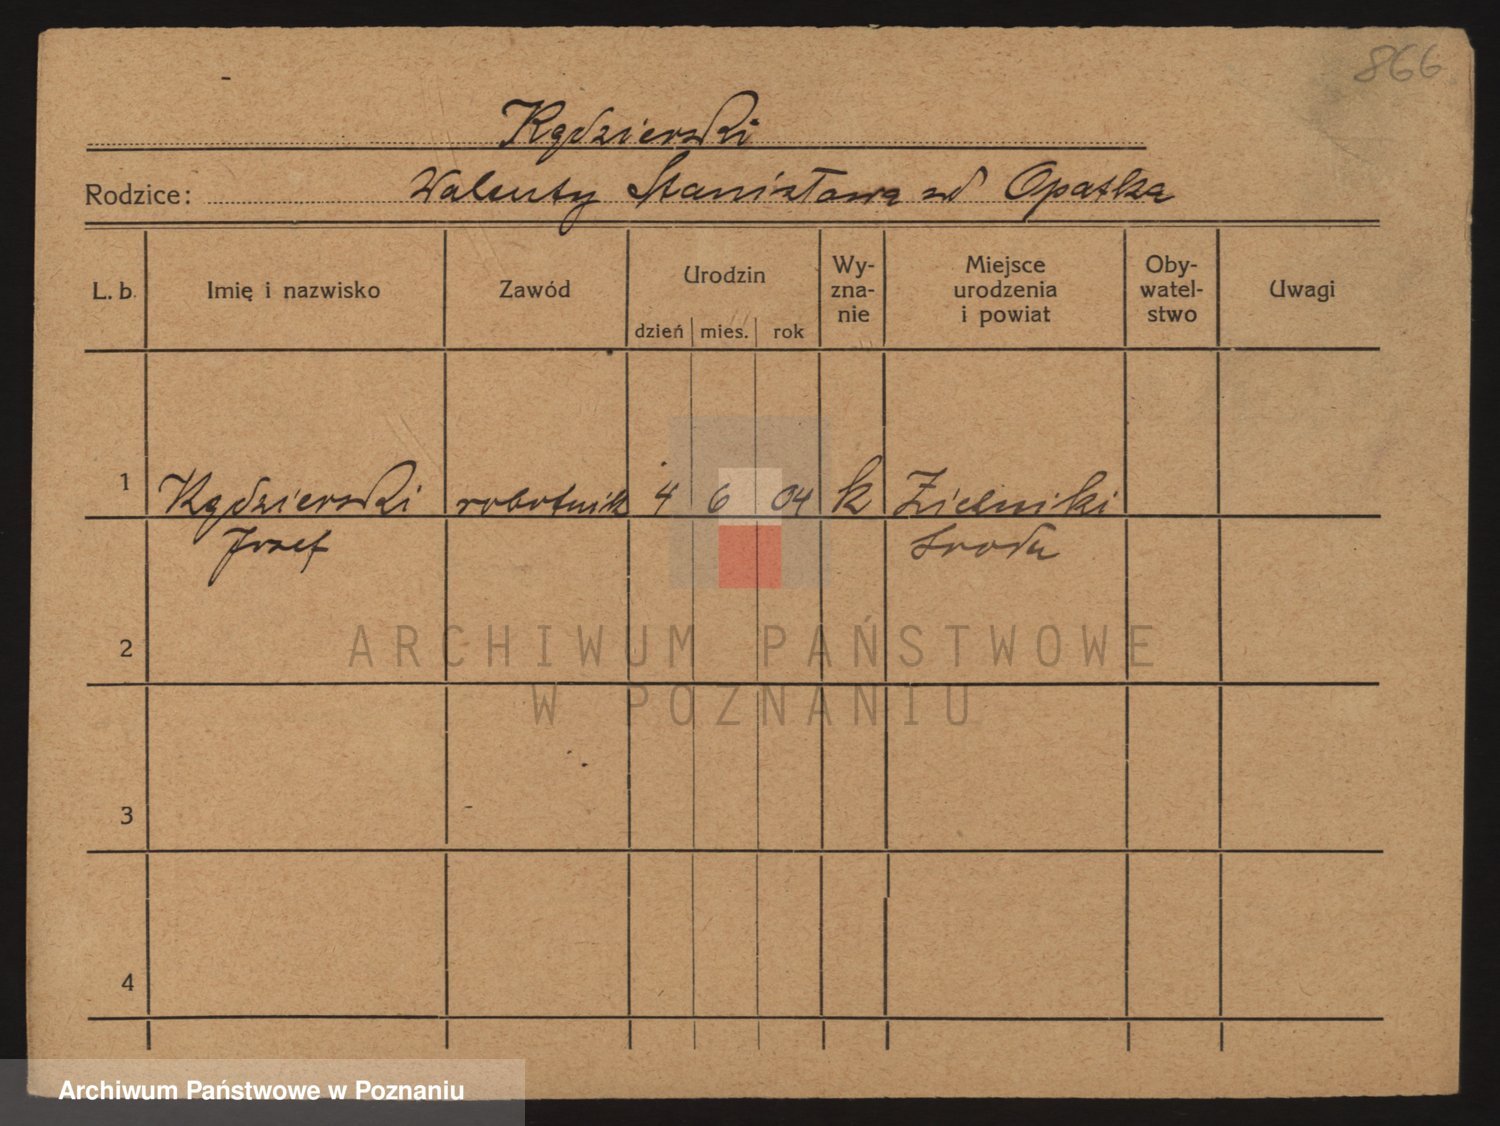 866
Kędzierski
Rodzice: Walenty Stanisława zd Opatka
L. b.
Imię i nazwisko
Zawód
Urodzin
dzień
mies.
rok
Wy-
zna-
nie
Miejsce
urodzenia
i powiat
Oby-
watel-
stwo
Uwagi
1 Kędzierski robotnik 4 6 04 k Zielniki
Jozef Sroda
2
3
4
ARCHIWUM PAŃSTWOWE
W POZNANIU
Archiwum Państwowe w Poznaniu